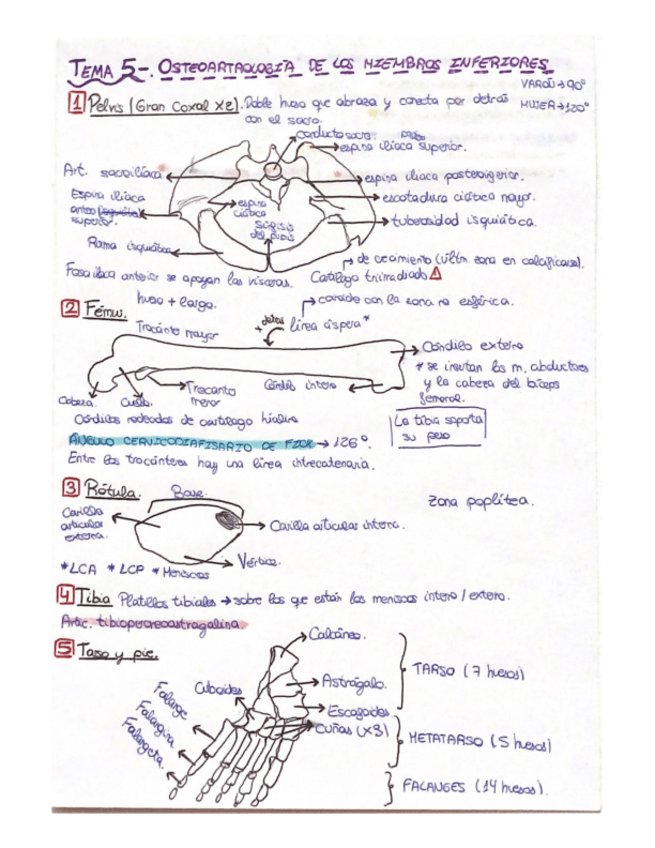 TEMA 5-. OSTEOARTROLOGÍA DE LOS MIEMBROS INFERIORES
VARÓN → 90°
MUJER → 120°
1 Pelvis (Gran Coxal x2). Doble hueso que abraza y conecta por detrás
con el sacro.
conducto sacro.
espina ilíaca superior.
Art. sacroilíaca
espina iliaca posteroinferior.
Espina ilíaca
antero
superior.
espina
ciática
escotadura ciática mayor.
Sínfisis
del pubis
tuberosidad isquiática.
Rama isquiática
de crecimiento (última zona en calcificarse).
Fosa iliaca anterior se apoyan las vísceras.
Cartílago trirradiado
hueso + largo.
coincide con la zona no esférica.
2 Fémur.
Trocánter mayor
+ detrás
línea áspera *
Cóndilo externo
* se insertan los m. abductores
y la cabeza del bíceps
femoral.
Cabeza.
Cuello.
Trocanter
menor
Cóndilo interno
Cóndilos rodeados de cartílago hialino
La tibia soporta
su peso
ÁNGULO CERVICODIAFISARIO DE FICK → 126°.
Entre los trocánteres hay una línea intrecantenaria.
3 Rótula.
Base.
Zona poplítea.
Carilla
articular
externa.
Carilla articular interna.
Vértice.
*LCA *LCP *Meniscos
4 Tibia Platillos tibiales → sobre los que están los meniscos interno / externo.
Artic. tibioperoneoastragalina
5 Tarso y pie.
Calcáneo.
Cuboides
Astrágalo.
TARSO (7 huesos)
Escafoides.
Cuñas (x3)
Falange
Falangina
Falangeta.
METATARSO (5 huesos)
FALANGES (14 huesos).